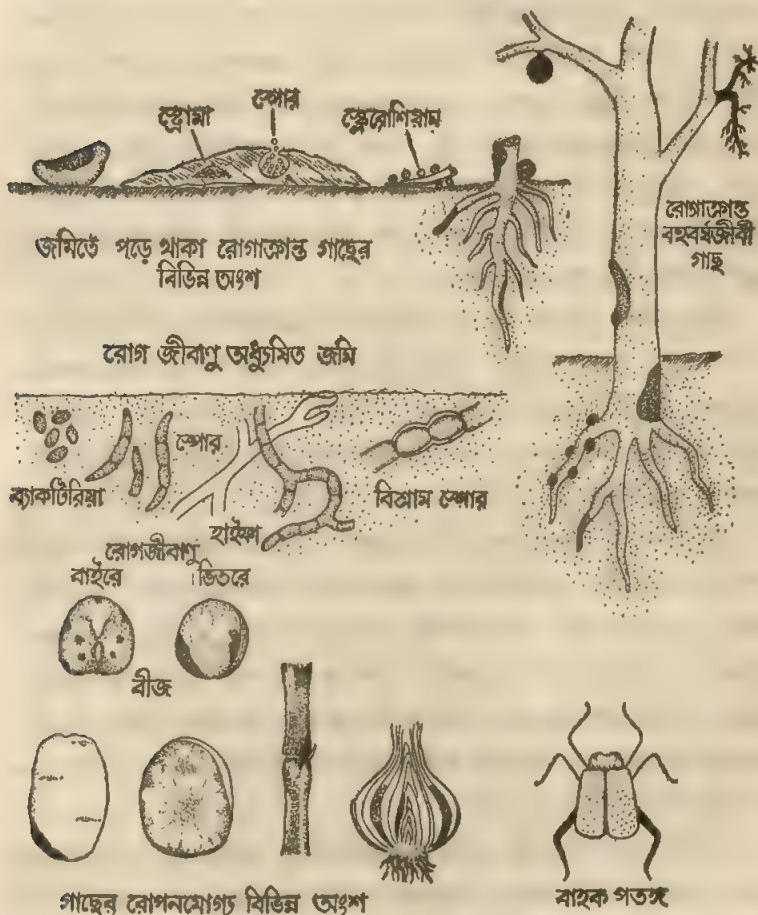 স্ট্রোমা
স্পোর
স্ক্লেরোশিয়াম
জমিতে পড়ে থাকা রোগাক্রান্ত গাছের
বিভিন্ন অংশ
রোগাক্রান্ত
বহুবর্ষজীবী
গাছ
রোগ জীবাণু অধ্যুষিত জমি
ব্যাকটিরিয়া
স্পোর
হাইফা
বিশ্রাম স্পোর
রোগজীবাণু
বাইরে
ভিতরে
বীজ
গাছের রোপনযোগ্য বিভিন্ন অংশ
বাহক পতঙ্গ